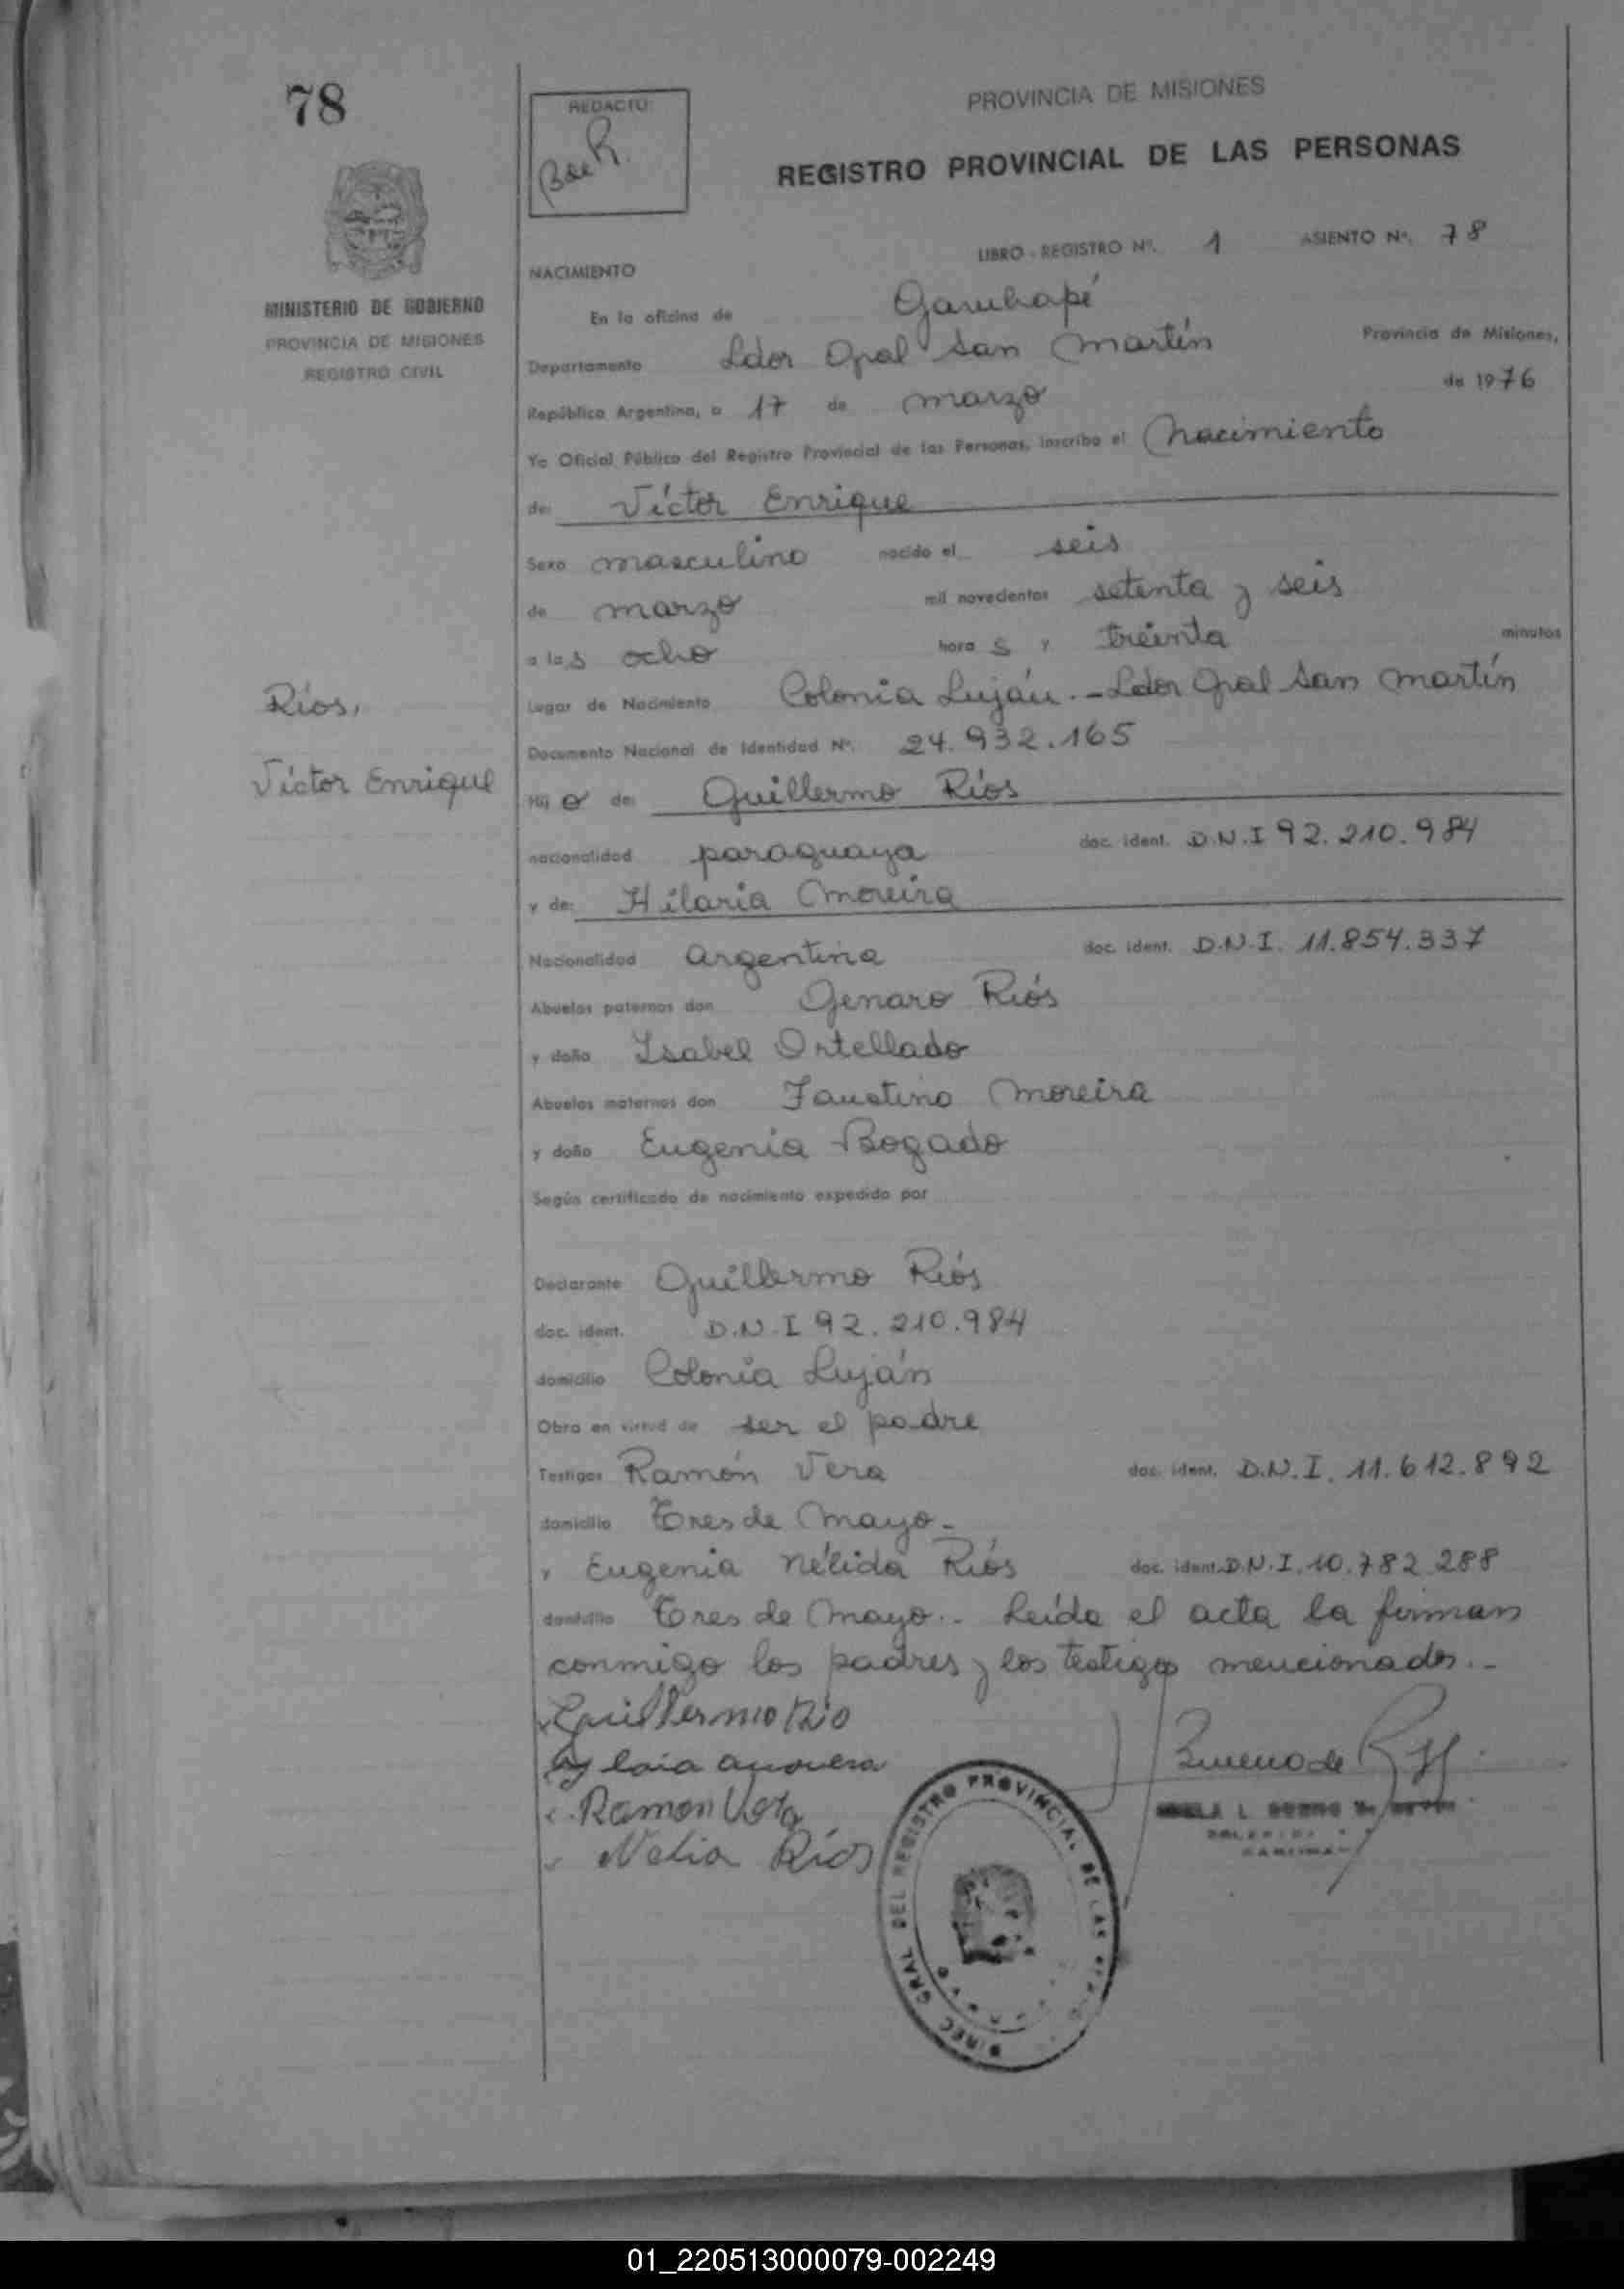 78
REDACTÓ:
PROVINCIA DE MISIONES
REGISTRO PROVINCIAL DE LAS PERSONAS
LIBRO - REGISTRO Nº. 1 ASIENTO Nº. 78
MINISTERIO DE GOBIERNO
PROVINCIA DE MISIONES
REGISTRO CIVIL
NACIMIENTO
En la oficina de Garuhapé
Departamento Ldor Gral San Martín Provincia de Misiones,
República Argentina, a 17 de marzo de 1976
Yo Oficial Público del Registro Provincial de las Personas, inscribo el Nacimiento
de: Víctor Enrique
Sexo masculino nacido el seis
de marzo mil novecientos setenta y seis
a las ocho horas y treinta minutos
Lugar de Nacimiento Colonia Luján.-Ldor Gral San Martín
Documento Nacional de Identidad Nº. 24.932.165
Ríos,
Víctor Enrique
Hijo de: Guillermo Ríos
nacionalidad paraguaya doc. ident. D.N.I 92.210.984
y de: Hilaria Moreira
Nacionalidad Argentina doc. ident. D.N.I. 11.854.337
Abuelos paternos don Genaro Riós
y doña Isabel Ortellado
Abuelos maternos don Faustino Moreira
y doña Eugenia Bogado
Según certificado de nacimiento expedido por
Declarante Guillermo Riós
doc. ident. D.N.I 92.210.984
domicilio Colonia Luján
Obra en virtud de ser el padre
Testigos Ramón Vera doc. ident. D.N.I. 11.612.892
domicilio Tres de Mayo.-
y Eugenia Nélida Riós doc. ident. D.N.I. 10.782.288
domicilio Tres de Mayo.- Leída el acta la firman
conmigo los padres y los testigos mencionados.-
Guillermo Rio
Ramon Vera
Nelia Ríos
DIREC GRAL DEL REGISTRO PROVINCIAL DE LAS
01_220513000079-002249